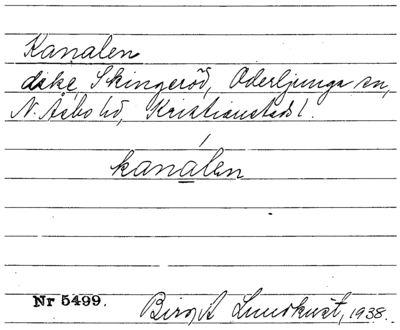 Kanalen
dike, Skingeröd, Oderljunga sn,
N. Åsbo hd, Kristianstads l.
kanálen
Nr 5499. Birgit Lundkvist, 1938.